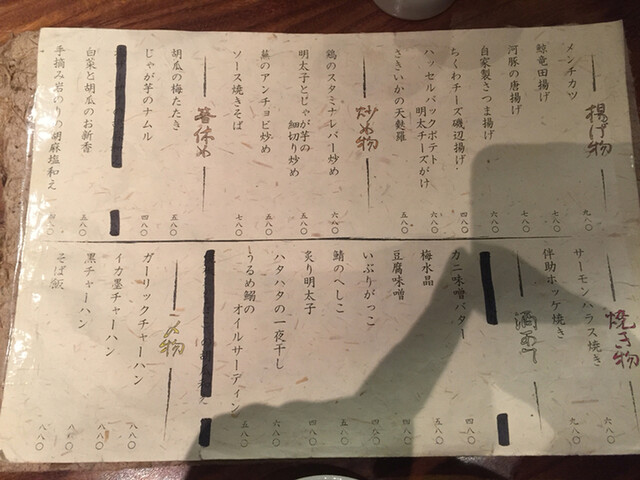 揚げ物
メンチカツ 九八〇
鯨竜田揚げ 七八〇
河豚の唐揚げ 七八〇
自家製さつま揚げ 六八〇
ちくわチーズ磯辺揚げ 四八〇
ハッセルバックポテト
明太チーズがけ 六八〇
さきいかの天麩羅 五八〇
炒め物
鶏のスタミナレバー炒め 六八〇
明太子とじゃが芋の
細切り炒め 五八〇
韮のアンチョビ炒め 五八〇
ソース焼きそば 七八〇
箸休め
胡瓜の梅たたき 五八〇
じゃが芋のナムル 四八〇
白菜と胡瓜のお新香 五八〇
手摘み岩のりの胡麻塩和え
焼き物
サーモンハラス焼き 六八〇
伴助ホッケ焼き 九八〇
カニ味噌バター 四八〇
梅水晶 五八〇
豆腐味噌 四八〇
いぶりがっこ 四八〇
鯖のへしこ 五八〇
炙り明太子 四八〇
ハタハタの一夜干し 六八〇
うるめ鰯の
オイルサーディン 五八〇
〆物
ガーリックチャーハン 八八〇
イカ墨チャーハン 八八〇
黒チャーハン 八八〇
そば飯 八八〇